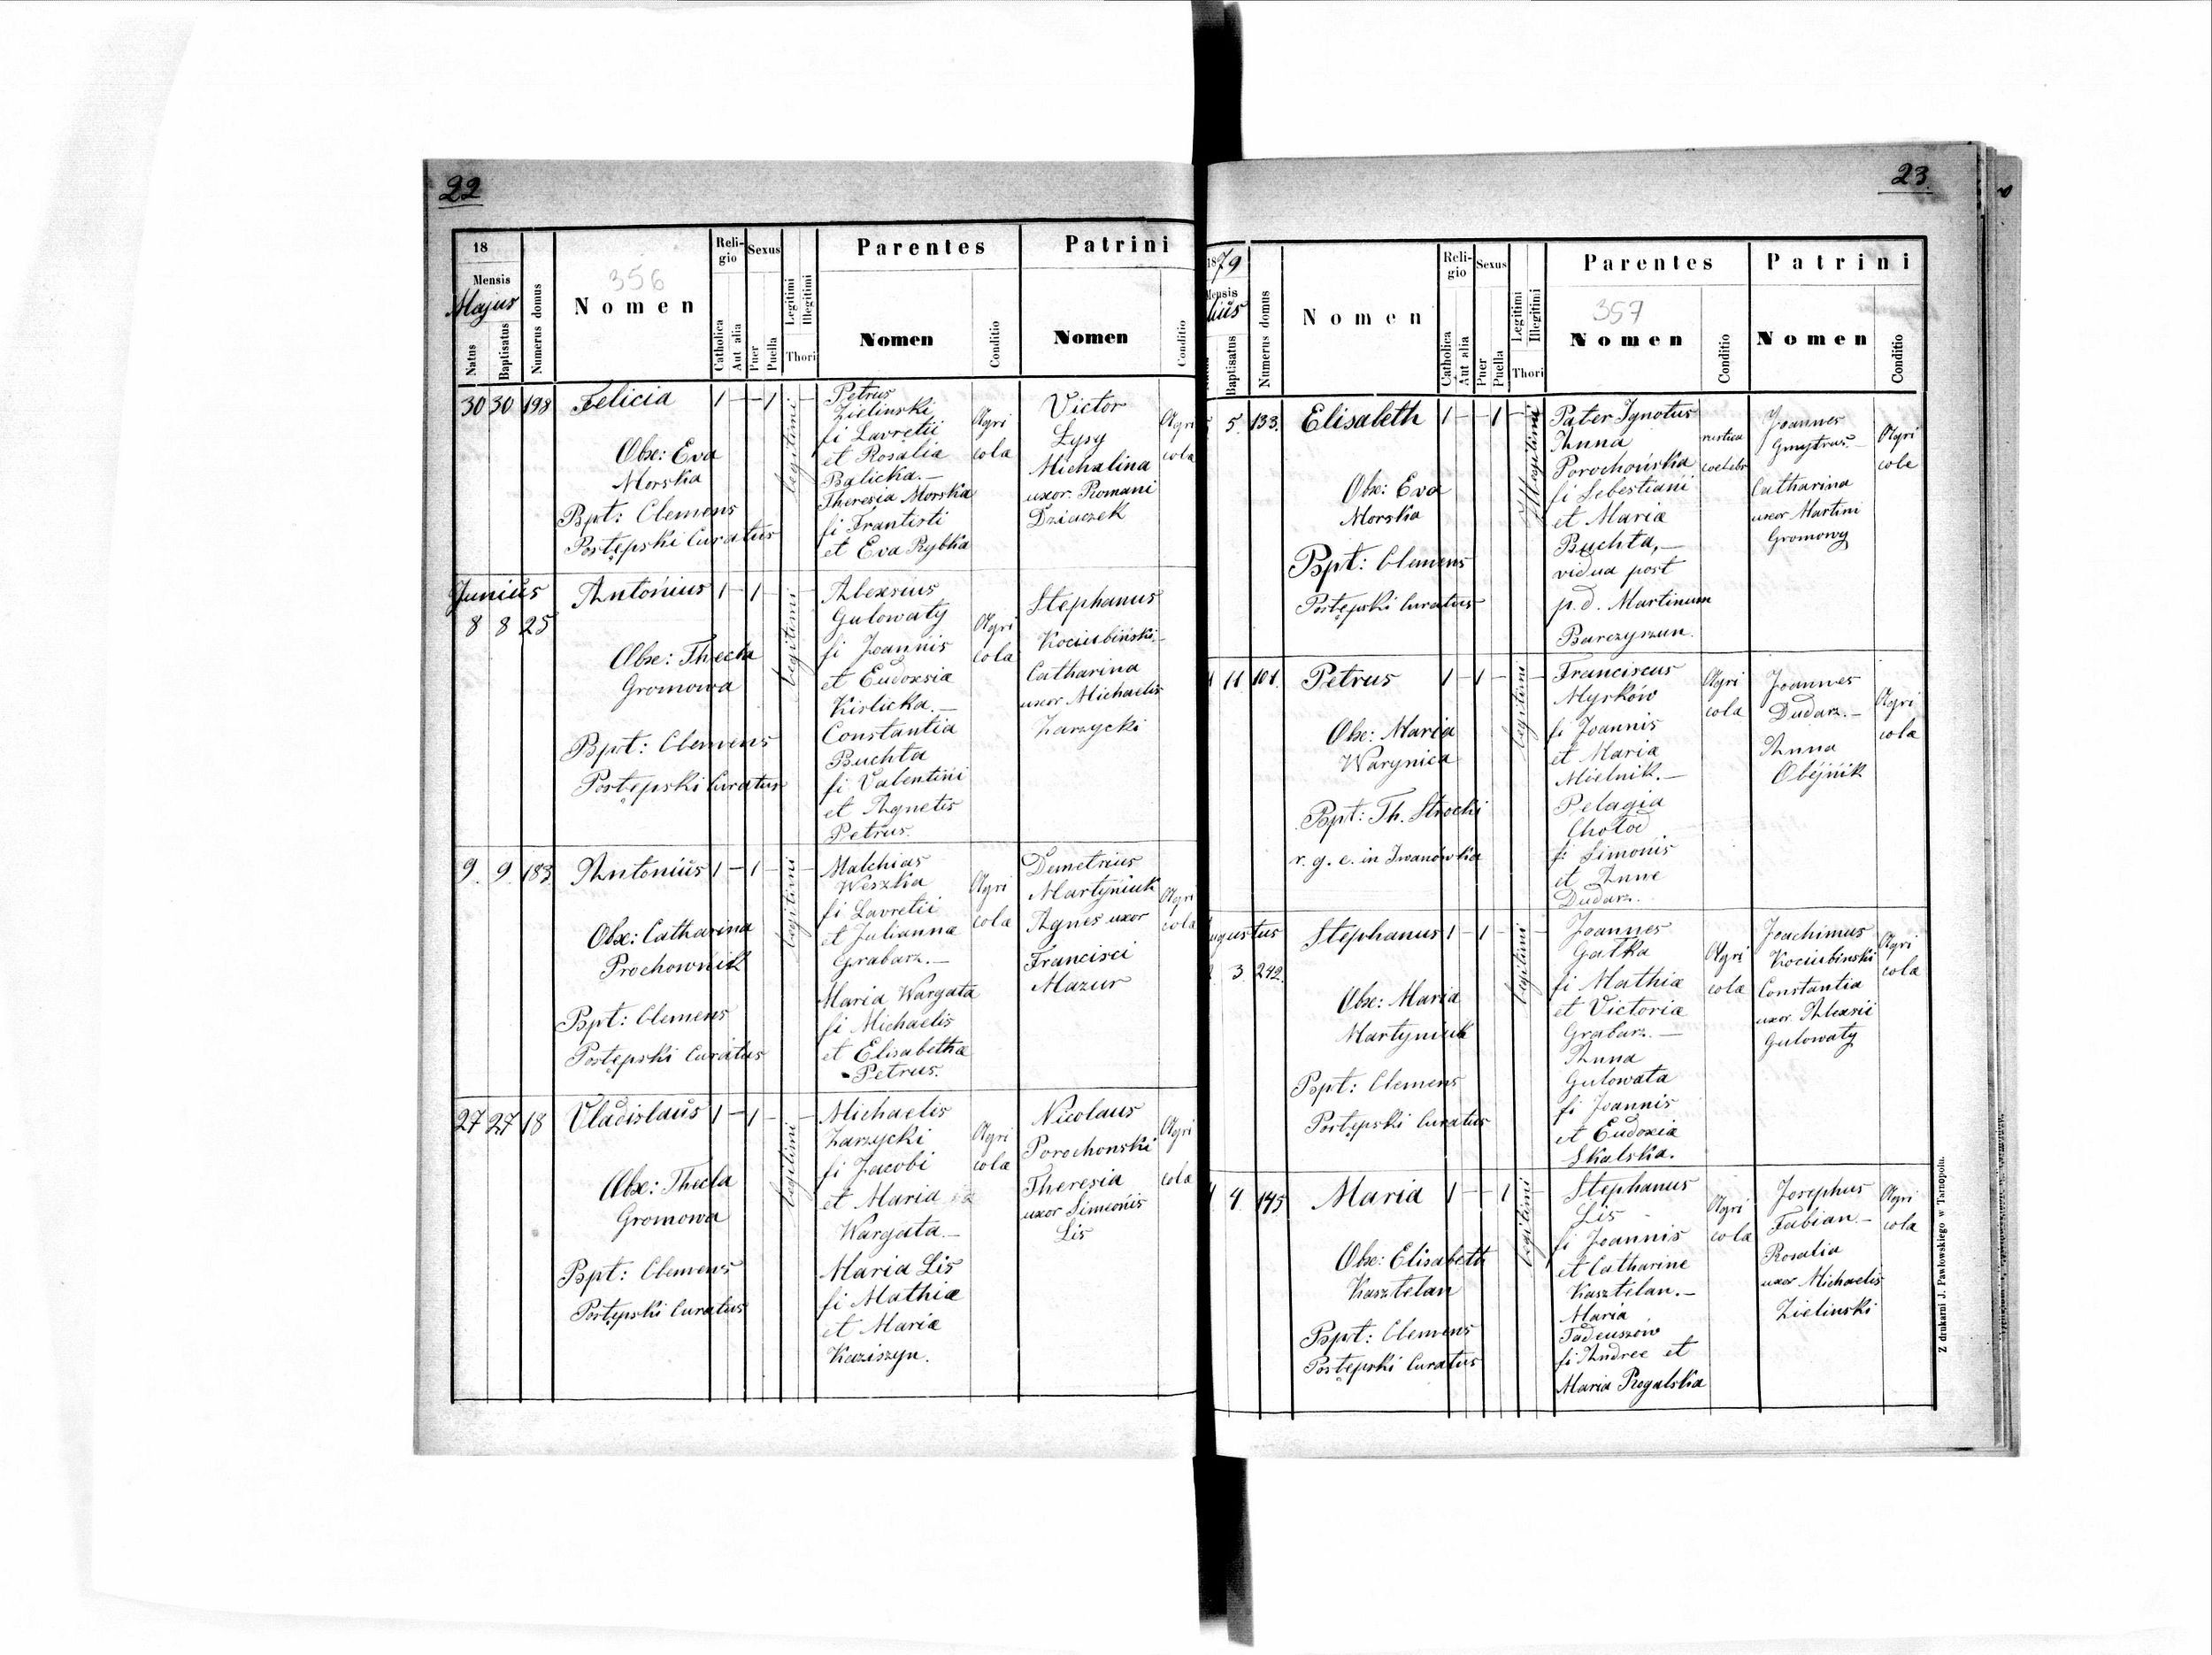 22
18
Mensis
Majus
Natus
Baptisatus
Numerus domus
356
Nomen
Reli-
gio
Catholica
Aut alia
Sexus
Puer
Puella
Legitimi
Illegitimi
Thori
Parentes
Nomen
Conditio
Patrini
Nomen
Conditio
30 30 198
Felicia
1 – – 1 –
legitimi
Obx: Eva
Morska
Bpt: Clemens
Postępski Curatus
Petrus
Zielinski
fi Lavretii
et Rosalia
Balicka. –
Theresia Morska
fi Frantisti
et Eva Rybka
Agri
cola
Victor
Łysy
Michalina
uxor Romani
Dziaczek
Agri
cola
Junius
8 8 25
Antonius
1 – 1 –
legitimi
Obx: Thecla
Gromowa
Bpt: Clemens
Postępski Curatus
Alexsius
Gulowaty
fi Joannis
et Eudoxsia
Kislicka. –
Constantia
Buchta
fi Valentini
et Agnetis
Petrus.
Agri
cola
Stephanus
Kociubiński –
Catharina
uxor Michaelis
Zarzycki
9. 9. 183
Antonius
1 – 1 –
legitimi
Obx: Catharina
Prochownik
Bpt: Clemens
Postępski Curatus
Malchias
Weszka
fi Lavretii
et Julianna
Grabarz. –
Maria Wargata
fi Michaelis
et Elisabetha
Petrus.
Agri
cola
Demetrius
Martyniuk
Agnes uxor
Francisci
Mazur
Agri
cola
27 27 18
Vladislaus
1 – 1 –
legitimi
Obx: Thecla
Gromowa
Bpt: Clemens
Postępski Curatus
Michaelis
Zarzycki
fi Jacobi
et Maria
Wargata. –
Maria Lis
fi Mathiæ
et Mariæ
Kaziszyn.
Agri
cola
Nicolaus
Porochonski
Theresia
uxor Simeonis
Lis
Agri
cola
23.
1879
Mensis
Baptisatus
Numerus domus
Nomen
Reli-
gio
Catholica
Aut alia
Sexus
Puer
Puella
Legitimi
Illegitimi
Thori
Parentes
357
Nomen
Conditio
Patrini
Nomen
Conditio
5. 133.
Elisabeth
1 – 1 –
Illegitimi
Obx: Eva
Morska
Bpt: Clemens
Postępski Curatus
Pater Ignotus
Anna
Porochońska
fi Sebestiani
et Mariæ
Buchta, –
vidua post
p. d. Martinum
Barczyszun.
rustica
Joannes
Gmytrus. –
Catharina
uxor Martini
Gromowy
Agri
cole
11 101.
Petrus
1 – 1 –
legitimi
Obx: Maria
Warynica
Bpt: Th. Strocki
r. g. e. in Iwanówka
Franciscus
Myrków
fi Joannis
et Mariæ
Mielnik. –
Pelagia
Chołod
fi Simonis
et Anne
Dudarz.
Agri
cola
Joannes
Dudarz. –
Anna
Obéjnik
Agri
cola
Augustus
3 242.
Stephanus
1 – 1 –
legitimi
Obx: Maria
Martyniuk
Bpt: Clemens
Postępski Curatus
Joannes
Gałka
fi Mathiæ
et Victoriæ
Grabarz. –
Anna
Gulowata
fi Joannis
et Eudoxia
Skalska.
Agri
cola
Joachimus
Kociubinski
Constantia
uxor Alexsii
Gulowaty
Agri
cola
4 145
Maria
1 – 1 –
legitimi
Obx: Elisabeth
Kasztelan
Bpt: Clemens
Postępski Curatus
Stephanus
Lis
fi Joannis
et Catharine
Kasztelan. –
Maria
Tadeuszów
fi Andree et
Maria Rogalska
Agri
cola
Josephus
Fabian. –
Rosalia
uxor Michaelis
Zielinski
Agri
cola
Z drukarni J. Pawłowskiego w Tarnopolu.